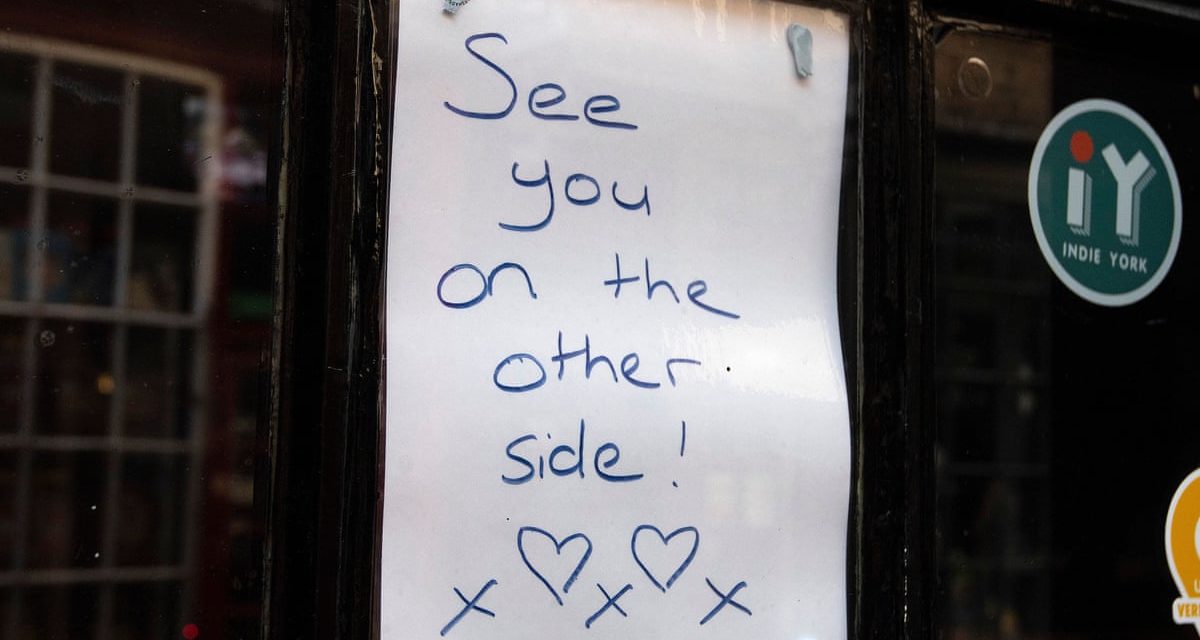 See
you
on the
other
side!
x ♡ x ♡ x
iY
INDIE YORK